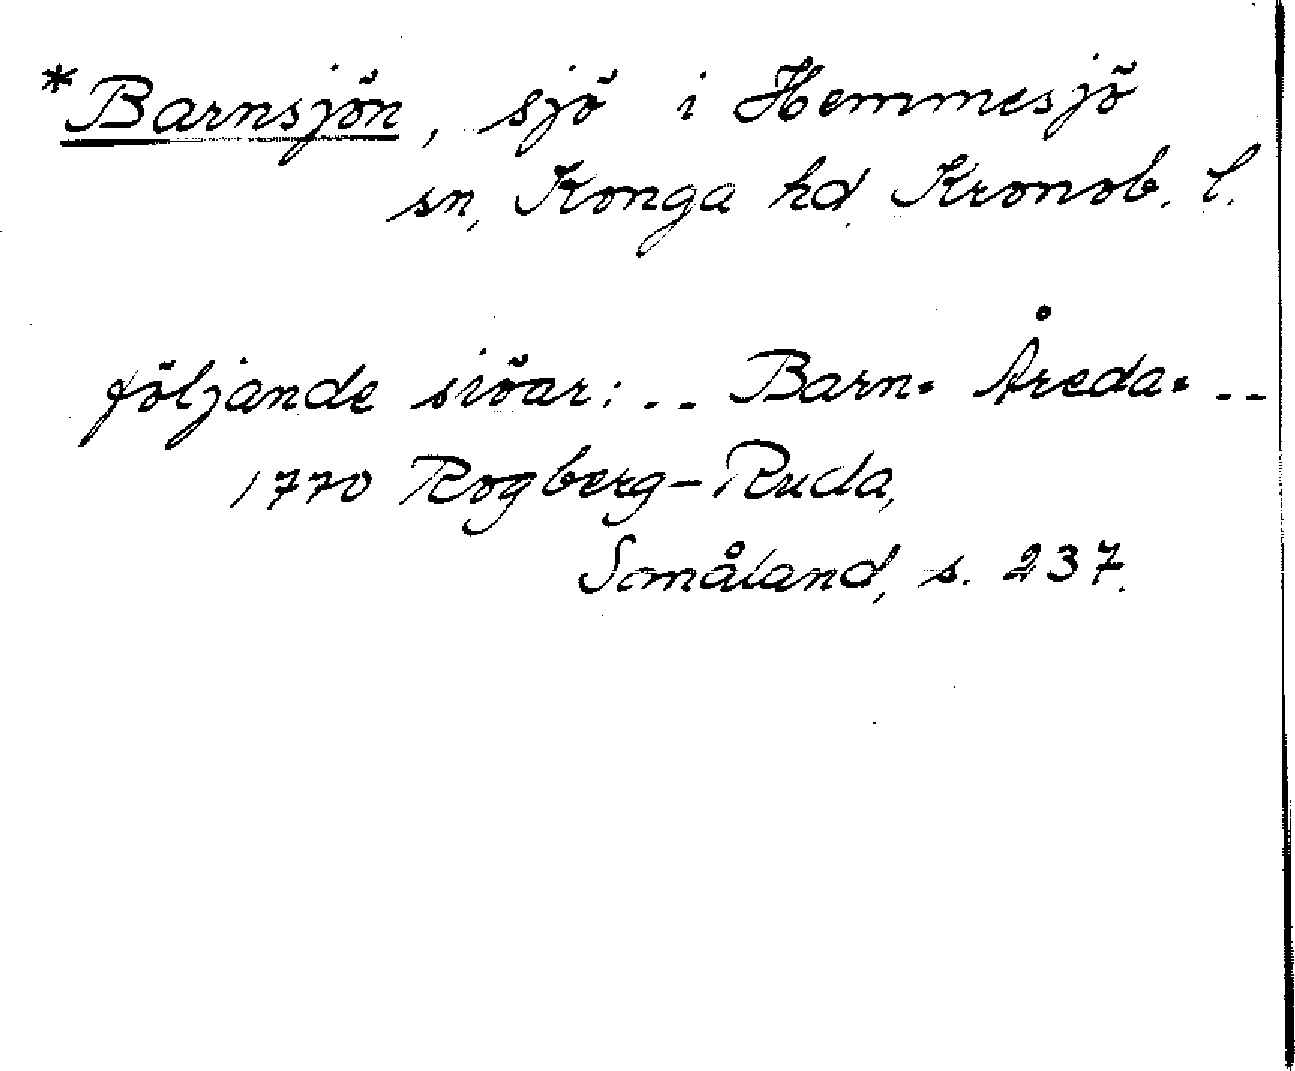 *Barnsjön, sjö i Hemmesjö
sn, Konga hd, Kronob. l.
följande siöar: -- Barn= Åreda= --
1770 Rogberg-Ruda,
Småland, s. 237.